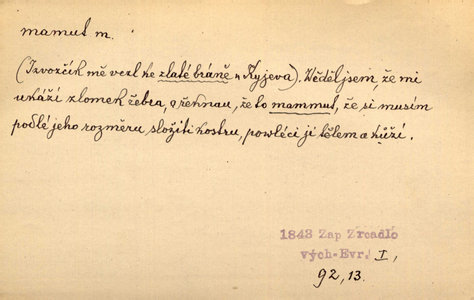 mamut m.
(Izvozčík mě vezl ke zlaté bráně u Kyjeva). Věděl jsem, že mi
ukáží zlomek žebra, a řeknau, že to mammut, že si musím
podlé jeho rozměru složiti kostru, powléci ji tělem a kůží.
1843 Zap Zrcadlo
vých-Evr. I,
92, 13.